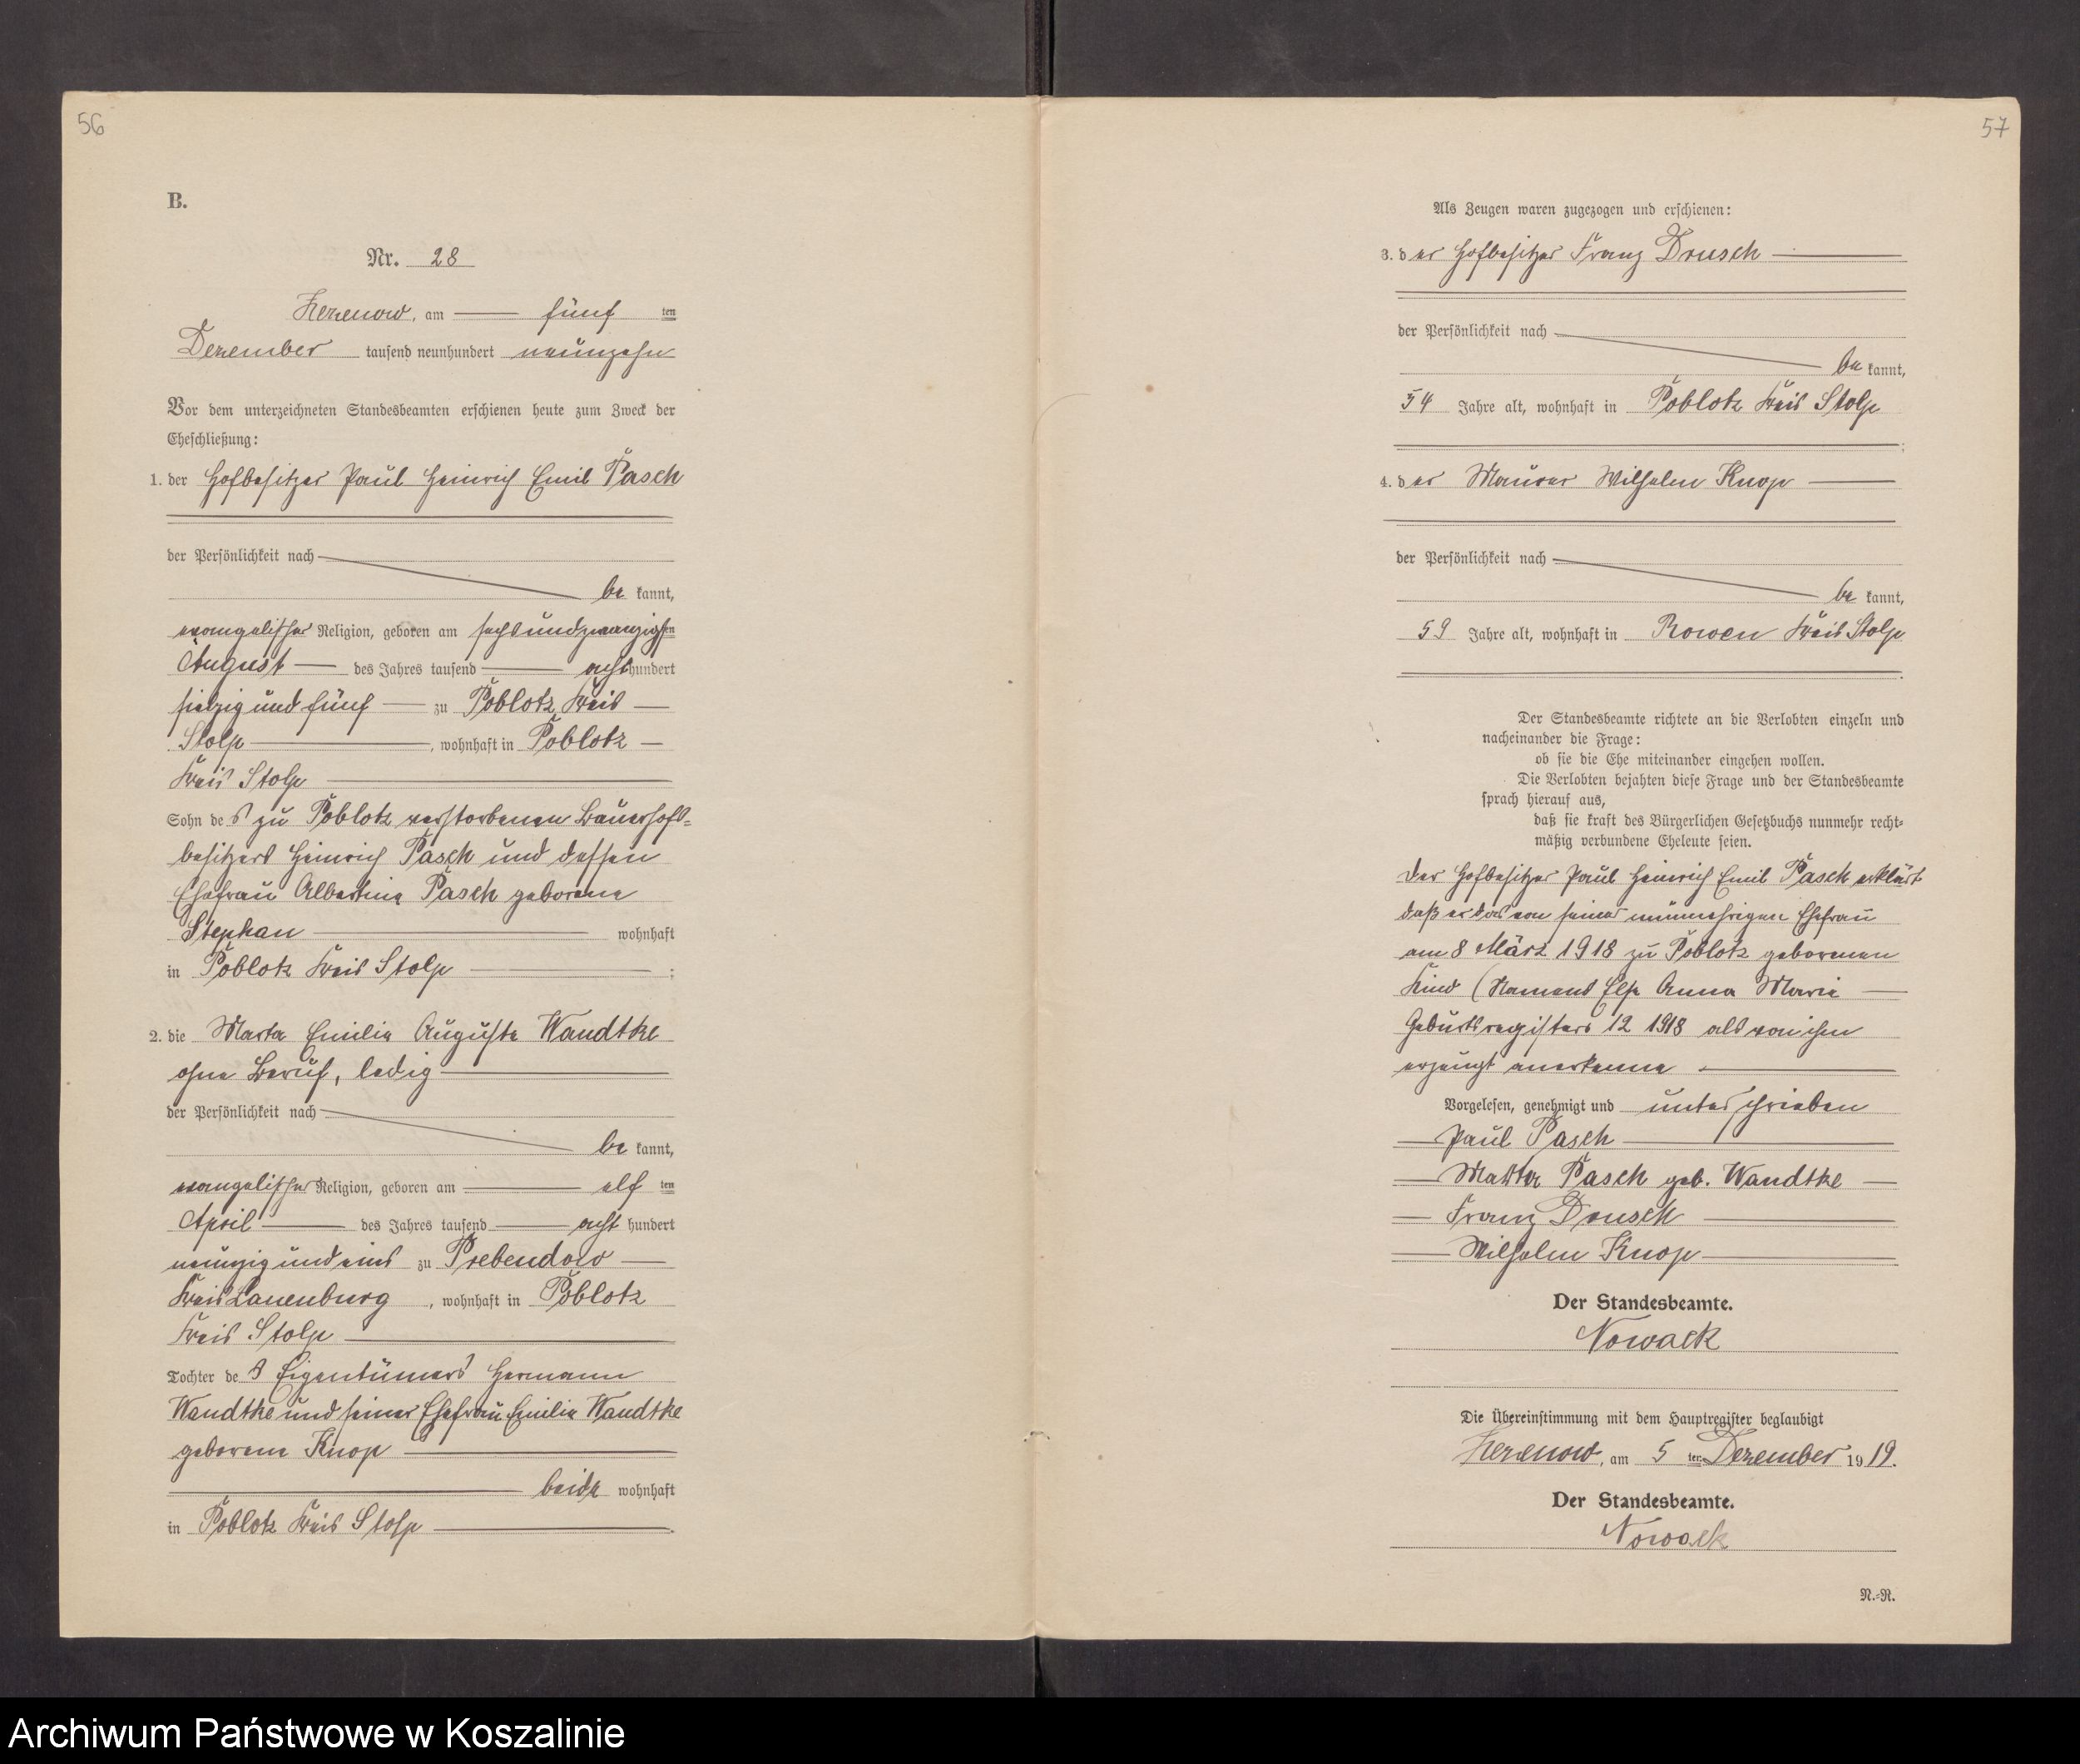 56
B.
Nr. 28
Zezenow, am fünf ten
Dezember tausend neunhundert neunzehn
Vor dem unterzeichneten Standesbeamten erschienen heute zum Zweck der
Eheschließung:
1. der Hofbesitzer Paul Heinrich Emil Pasch
der Persönlichkeit nach
be kannt,
evangelischer Religion, geboren am sechsundzwanzigsten
August des Jahres tausend acht hundert
siebzig und fünf zu Poblotz Kreis
Stolp, wohnhaft in Poblotz
Kreis Stolp
Sohn des zu Poblotz verstorbenen Bauerhofs-
besitzers Heinrich Pasch und dessen
Ehefrau Albertine Pasch geborene
Stephan wohnhaft
in Poblotz Kreis Stolp ;
2. die Marta Emilie Auguste Wandtke
ohne Beruf, ledig
der Persönlichkeit nach
be kannt,
evangelischer Religion, geboren am elf ten
April des Jahres tausend acht hundert
neunzig und eins zu Prebendow
Kreis Lauenburg, wohnhaft in Poblotz
Kreis Stolp
Tochter des Eigentümers Hermann
Wandtke und seiner Ehefrau Emilie Wandtke
geborene Knop
beide wohnhaft
in Poblotz Kreis Stolp.
57
Als Zeugen waren zugezogen und erschienen:
3. der Hofbesitzer Franz Drusch
der Persönlichkeit nach
be kannt,
54 Jahre alt, wohnhaft in Poblotz Kreis Stolp
4. der Maurer Wilhelm Knop
der Persönlichkeit nach
be kannt,
59 Jahre alt, wohnhaft in Rowen Kreis Stolp
Der Standesbeamte richtete an die Verlobten einzeln und
nacheinander die Frage:
ob sie die Ehe miteinander eingehen wollen.
Die Verlobten bejahten diese Frage und der Standesbeamte
sprach hierauf aus,
daß sie kraft des Bürgerlichen Gesetzbuchs nunmehr recht-
mäßig verbundene Eheleute seien.
Der Hofbesitzer Paul Heinrich Emil Pasch erklärt
daß er das von seiner nunmehrigen Ehefrau
am 8 März 1918 zu Poblotz geborenen
Kind (Namens Else Anna Marie
Geburtsregisters 12 1918 als von ihm
erzeugt anerkenne.
Vorgelesen, genehmigt und unterschrieben
Paul Pasch
Marta Pasch geb. Wandtke
Franz Drusch
Wilhelm Knop
Der Standesbeamte.
Nowack
Die Übereinstimmung mit dem Hauptregister beglaubigt
Zezenow, am 5 ten Dezember 1919.
Der Standesbeamte.
Nowack
N.-R.
Archiwum Państwowe w Koszalinie